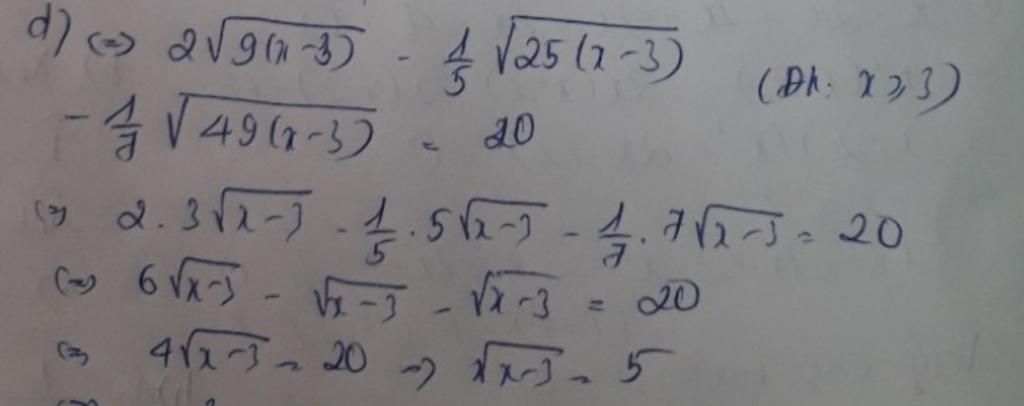 d) (=) 2√9(x-3) - 1/5 √25(x-3) (Đk: x ≥ 3)
- 1/7 √49(x-3) = 20
(=) 2 . 3√x-3 - 1/5 . 5√x-3 - 1/7 . 7√x-3 = 20
(=) 6√x-3 - √x-3 - √x-3 = 20
(=) 4√x-3 = 20 => √x-3 = 5